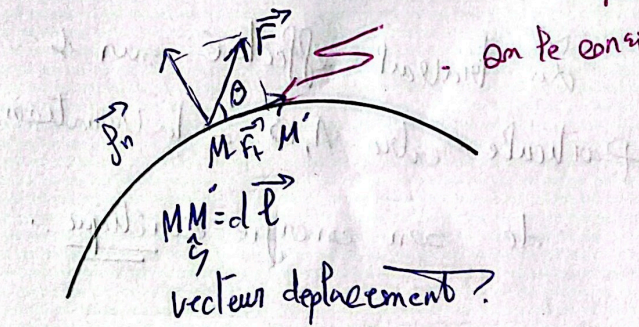 F⃗
on le consi
θ
f⃗n
M F⃗t M'
MM' = dl⃗
vecteur deplacement ?